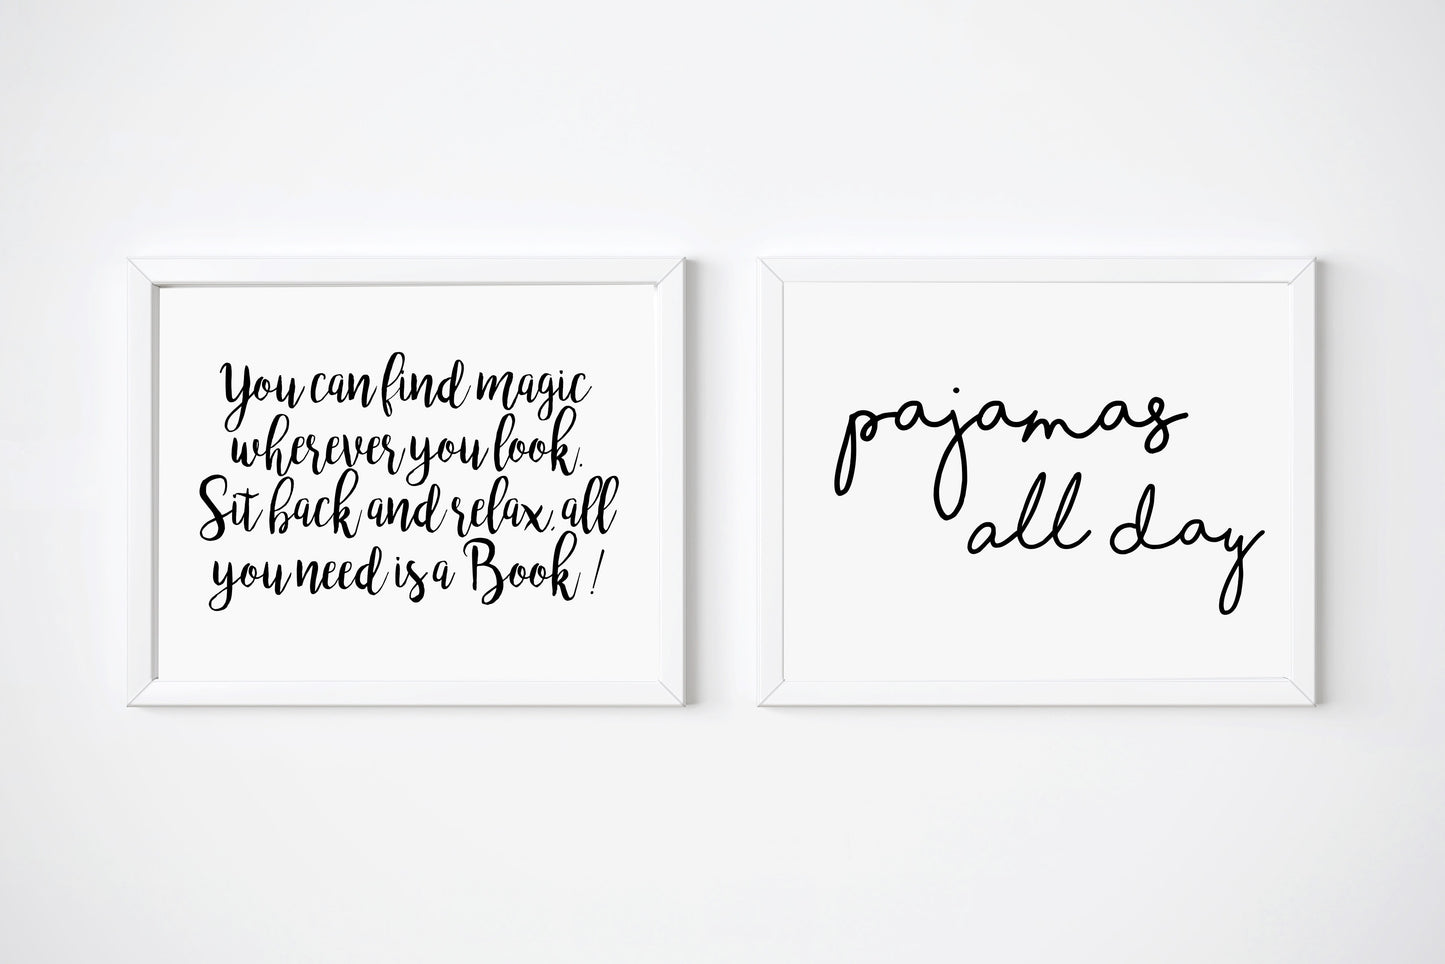 You can find magic
wherever you look.
Sit back and relax, all
you need is a Book !
pajamas
all day